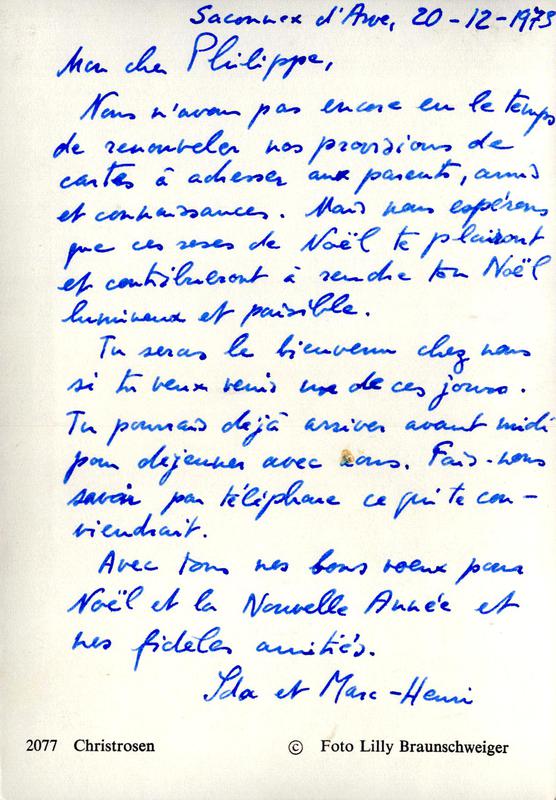 Saconnex d'Arve, 20-12-1973
Mon cher Philippe,
Nous n'avons pas encore eu le temps
de renouveler nos provisions de
cartes à adresser aux parents, amis
et connaissances. Mais nous espérons
que ces roses de Noël te plairont
et contribueront à rendre ton Noël
lumineux et paisible.
Tu seras le bienvenu chez nous
si tu veux venir un de ces jours.
Tu pourrais déjà arriver avant midi
pour déjeuner avec nous. Fais-nous
savoir par téléphone ce qui te con-
viendrait.
Avec tous nos bons voeux pour
Noël et la Nouvelle Année et
nos fidèles amitiés.
Ida et Marc-Henri
2077 Christrosen © Foto Lilly Braunschweiger